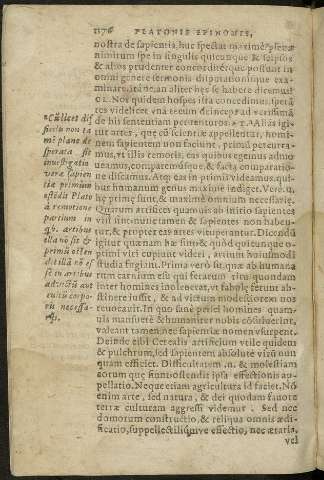 1176 PLATONIS EPINOMIS,
nostra de sapientia, huc spectat maximè: ipsæne
nimirum spe in singulis quicunque & seipsos
& alios prudenter concorditérque possunt in
omni genere sermonis disputationisque exa-
minare, itáne, an aliter hęc se habere dicimus?
CL. Nos quidem hospes ista concedimus: sperā
des hic sententiam percenturos. AT. Alias igi
tur artes, quæ cũ scientiæ appellentur, homi-
nem sapientem non faciunt, primò percurra-
mus, vt illis remotis, eas quibus egemus admo
ueamus, comparémusque, & facta comparatio-
ne discamus. Atq; eas in primis videamus, qui-
bus humanum genus maxime indiget. Verè, n,
hę primę sunt, & maximè omnium necessariæ.
Quarum artifices quamuis ab initio sapientes
visi sint: nunc tamen & sapientes non habeu-
tur, & propter eas artes vituperantur. Dicendū
igitur quænam hæ sint: & quòd quicunque o-
primi viri cupiunt videri, artium huiusmodi
studia fugiant. Prima verò sit, quæ ab humana
rum carnium esu qui ferarum ritu quondam
inter homines inoleuerat, vt fabulę ferunt ab-
stinere iussit, & ad victum modestiorem nos
reuocauit. In quo sanè prisci homines quam-
uis mansuetè & humaniter nobis cōsuluerint,
valeant tamen, nec sapientiæ nomen vsurpent.
Deinde cibi Cerealis artificium vtile quidem
& pulchrum, sed sapientem absolutè virū nun
quam efficiet. Difficultatem, n. & molestiam
eorum quæ fiunt ostendit ipsa effectionis ap-
pellatio. Neque etiam agricultura id faciet. Nō
enim arte, sed natura, & dei quodam fauore
terræ culturam aggressi videmur. Sed nec
domorum constructio, & reliqua omnis ædi-
ficatio, suppellectilisque effectio, nec æraria,
vel
Scilicet dif
ficilia non ta
mē planè de
sperata sit
inuestigatio
veræ sapien
tiæ primùm
ostēdit Plato
à remotione
partium in
quib. artibus
illa nō sit &
primū osten
dit illā nō es
se in artibus
ad victū aut
cultū corpo-
ris necessa-
riis.